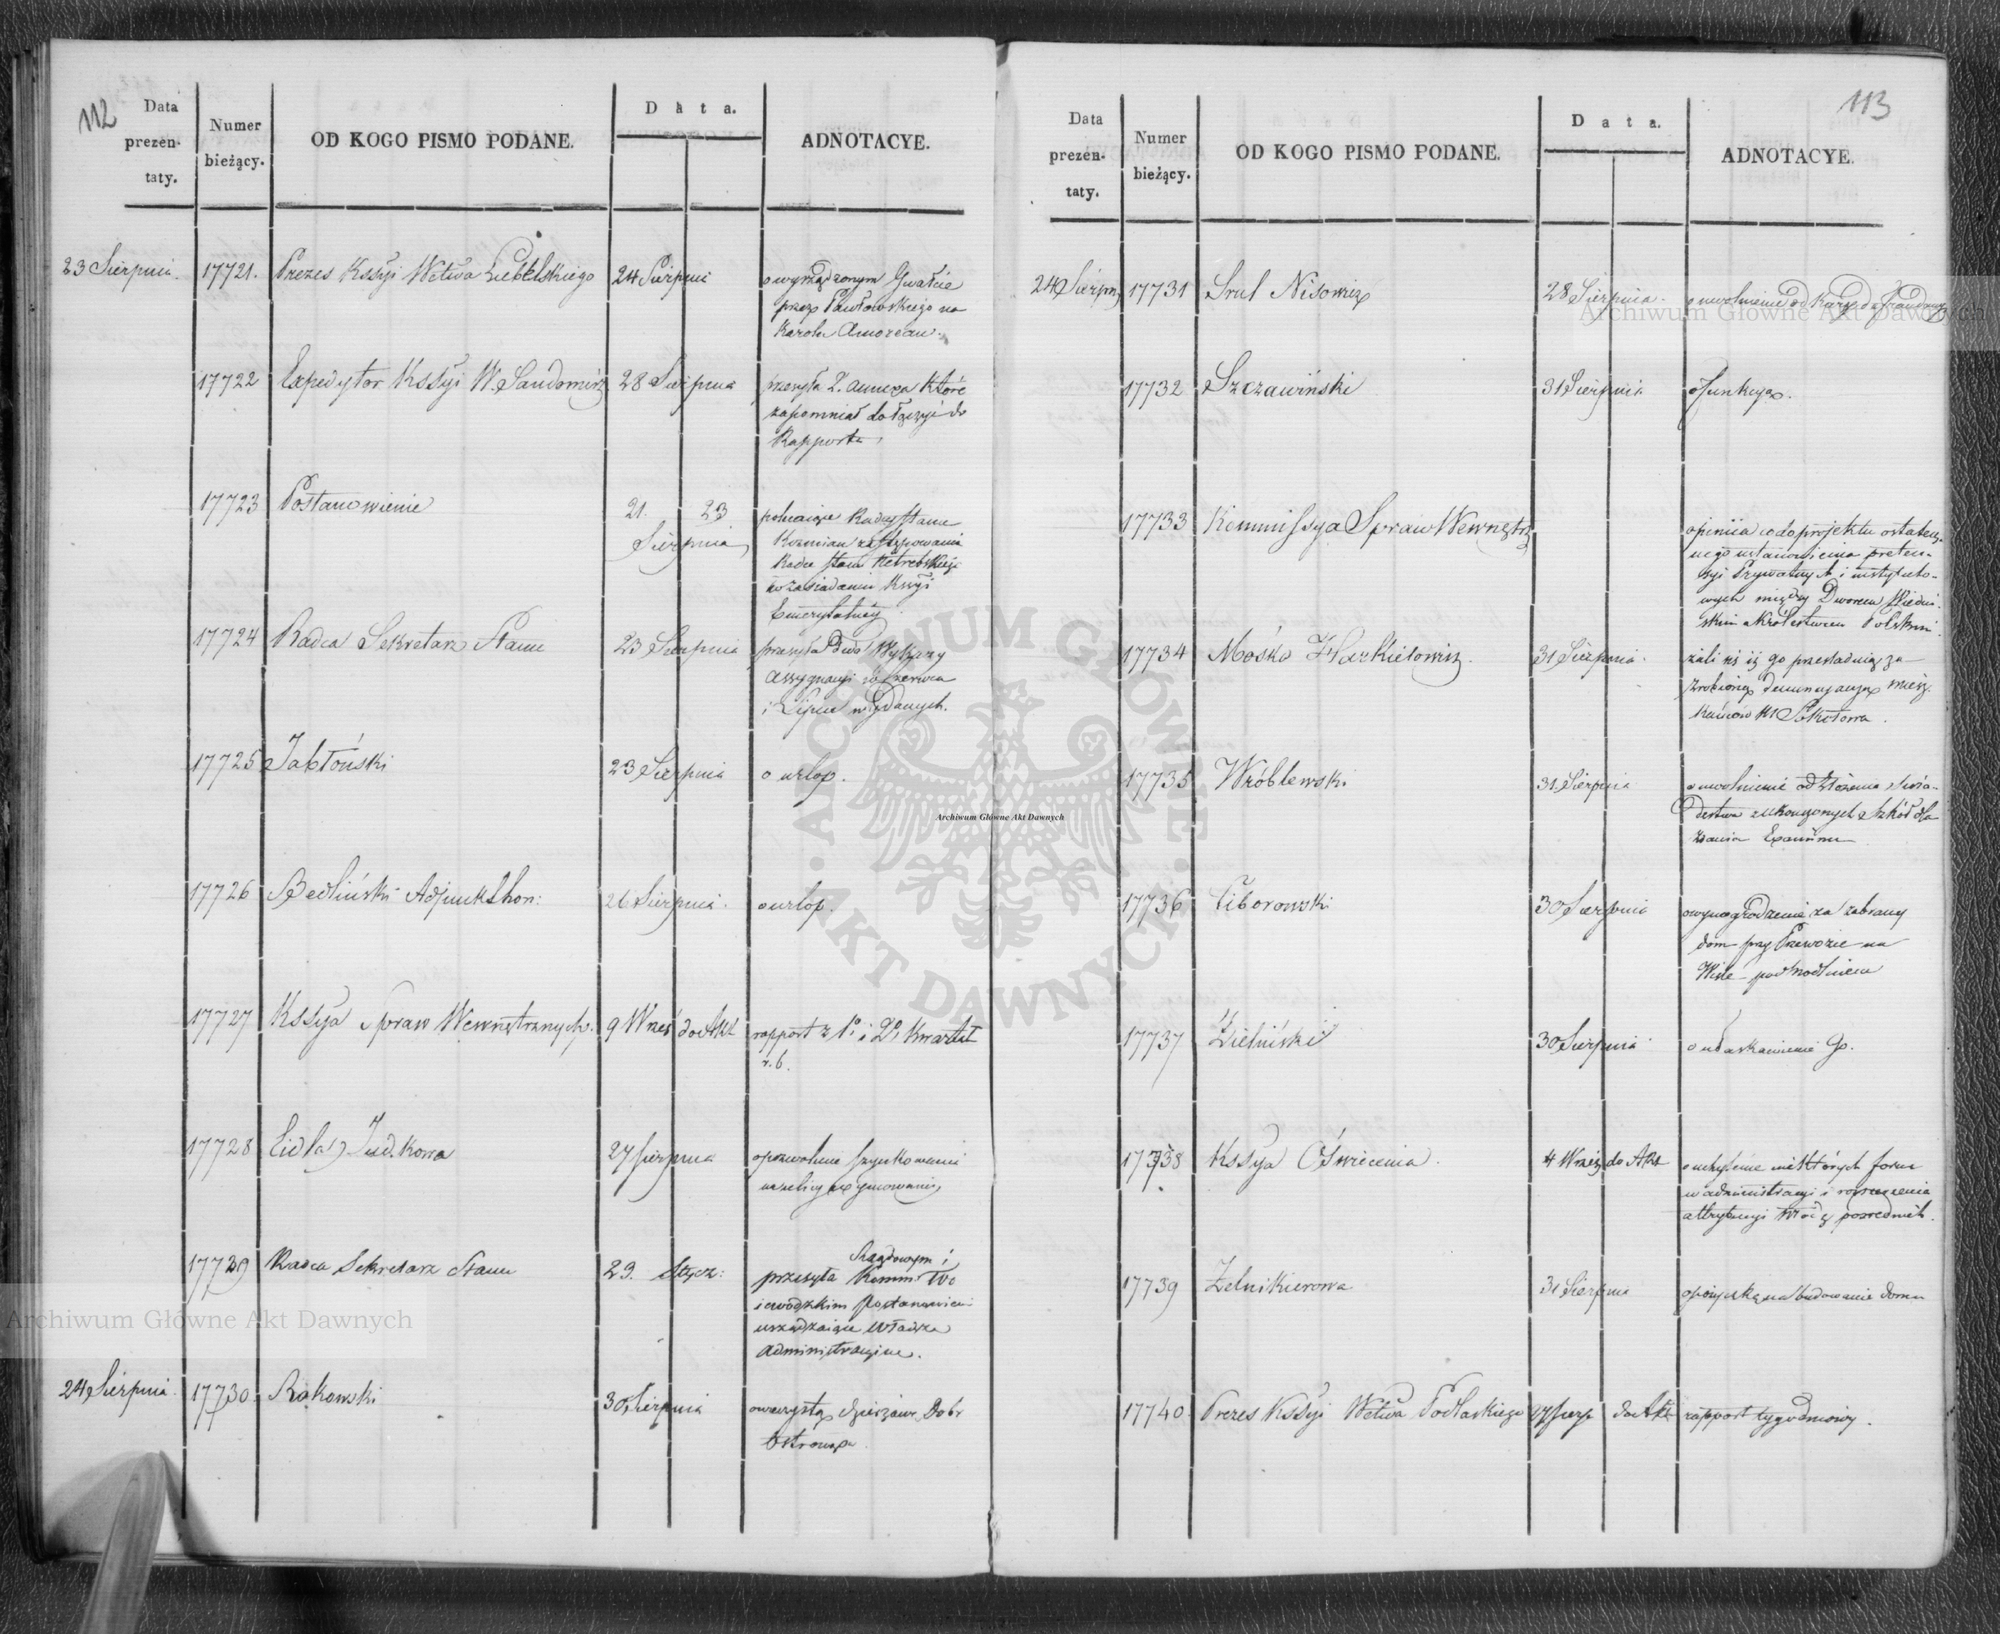 112
Data
prezen-
taty.
Numer
bieżący.
OD KOGO PISMO PODANE.
Data.
ADNOTACYE.
23 Sierpnia. 17721. Prezes Kssyi Wctwa Lubelskiego 24 Sierpnia o wyrządzonym Gwałcie
przez Pawłowskiego na
Karolu
17722 Expedytor Kssyi W. Sandomirs 28 Sierpnia przesyła 2. annexa które
zapomniał dołączyć do
Rapportu
17723 Postanowienie 21. 23 polecaiące Radcy Stanu
Sierpnia Kozmian zastępowania
Radcy Stanu
w zasiadaniu Kssyi
Emerytalney
17724 Radca Sekretarz Stanu 23 Sierpnia przesyła Dwa Wykazy
assygnacyi w Czerwcu
i Lipcu wydanych.
17725 Jabłoński 23 Sierpnia o urlop.
17726 Bedliński Adjunkt hon: 26 Sierpnia. o urlop.
17727 Kssya Spraw Wewnętrznych. 9 Wrześ do Akt rapport z 1o i 2o Kwartał
r. b.
17728 Judkowa 27 Sierpnia o pozwolenie szynkowania
17729 Radca Sekretarz Stanu 23. Stycz: Rządowym i
przesyła Komm: Wo
iewódzkim Postanowieni
urządzaiące Władze
Administracyine.
24 Sierpnia. 17730. Rakowski 30 Sierpnia o wieczystą dzierżawę Dobr
113
Data
prezen-
taty.
Numer
bieżący.
OD KOGO PISMO PODANE.
Data.
ADNOTACYE.
24 Sierpn 17731 Srul Nisowicz 28 Sierpnia. o uwolnienie od kary
17732 Szczawiński 31 Sierpnia o funkcyą.
17733 Kommissya Spraw Wewnętrz opiniia co do projektu ostatecz-
nego ustanowienia preten-
syi Prywatnych i instytuto-
wych między Dworem Wiedeń-
skim a Królestwem Polskim.
17734 Mosko Harkielowicz. 31 Sierpnia. żali się iż go prześladuią za
zrobioną denuncyacyą miesz
kańców M. Sokołowa.
17735 Wróblewski 31 Sierpnia o uwolnienie od złożenia świa-
dectwa z ukończonych Szkół dla
zdania Examinu
17736 Ciborowski 30 Sierpnia o wynagrodzenie za zabrany
dom przy Przewozie na
Wiśle pod Modlinem
17737 Zieliński 30 Sierpnia o ułaskawienie Go.
17738 Kssya Oświecenia. 4 Wrześ do Akt o uchylenie niektórych form
w administracyi i rozszerzenia
attrybucyi Władz pośrednich.
17739 Zelnikierowa 31 Sierpnia o pożyczkę na budowanie domu
17740 Prezes Kssyi Wctwa Podlaskiego 27 Sierp do Akt rapport tygodniowy.
Archiwum Główne Akt Dawnych
Archiwum Główne Akt Dawnych
Archiwum Główne Akt Dawnych
ARCHIWUM GŁÓWNE AKT DAWNYCH